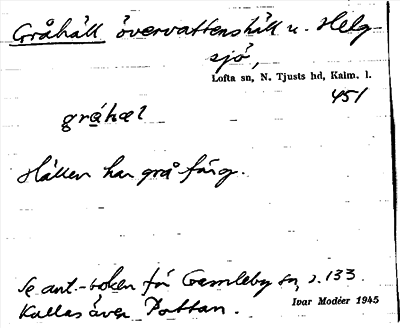 Gråhäll övervattenshäll u. Helg
sjö,
Lofta sn, N. Tjusts hd, Kalm. l.
451
gråhæl
Hällen har grå färg.
Se ant.-boken för Gamleby sn, s. 133.
Kallas även Pottan.
Ivar Modéer 1945